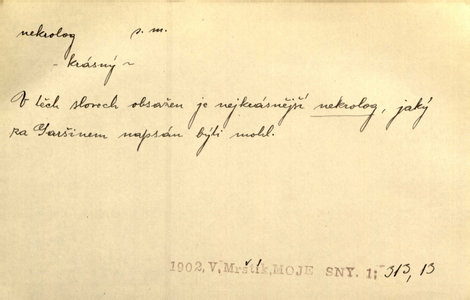 nekrolog s. m.
- krásný ~
V těch slovech obsažen je nejkrásnější nekrolog, jaký
za Garšinem napsán býti mohl.
1902, V, Mrštík, MOJE SNY. 1; 313, 13